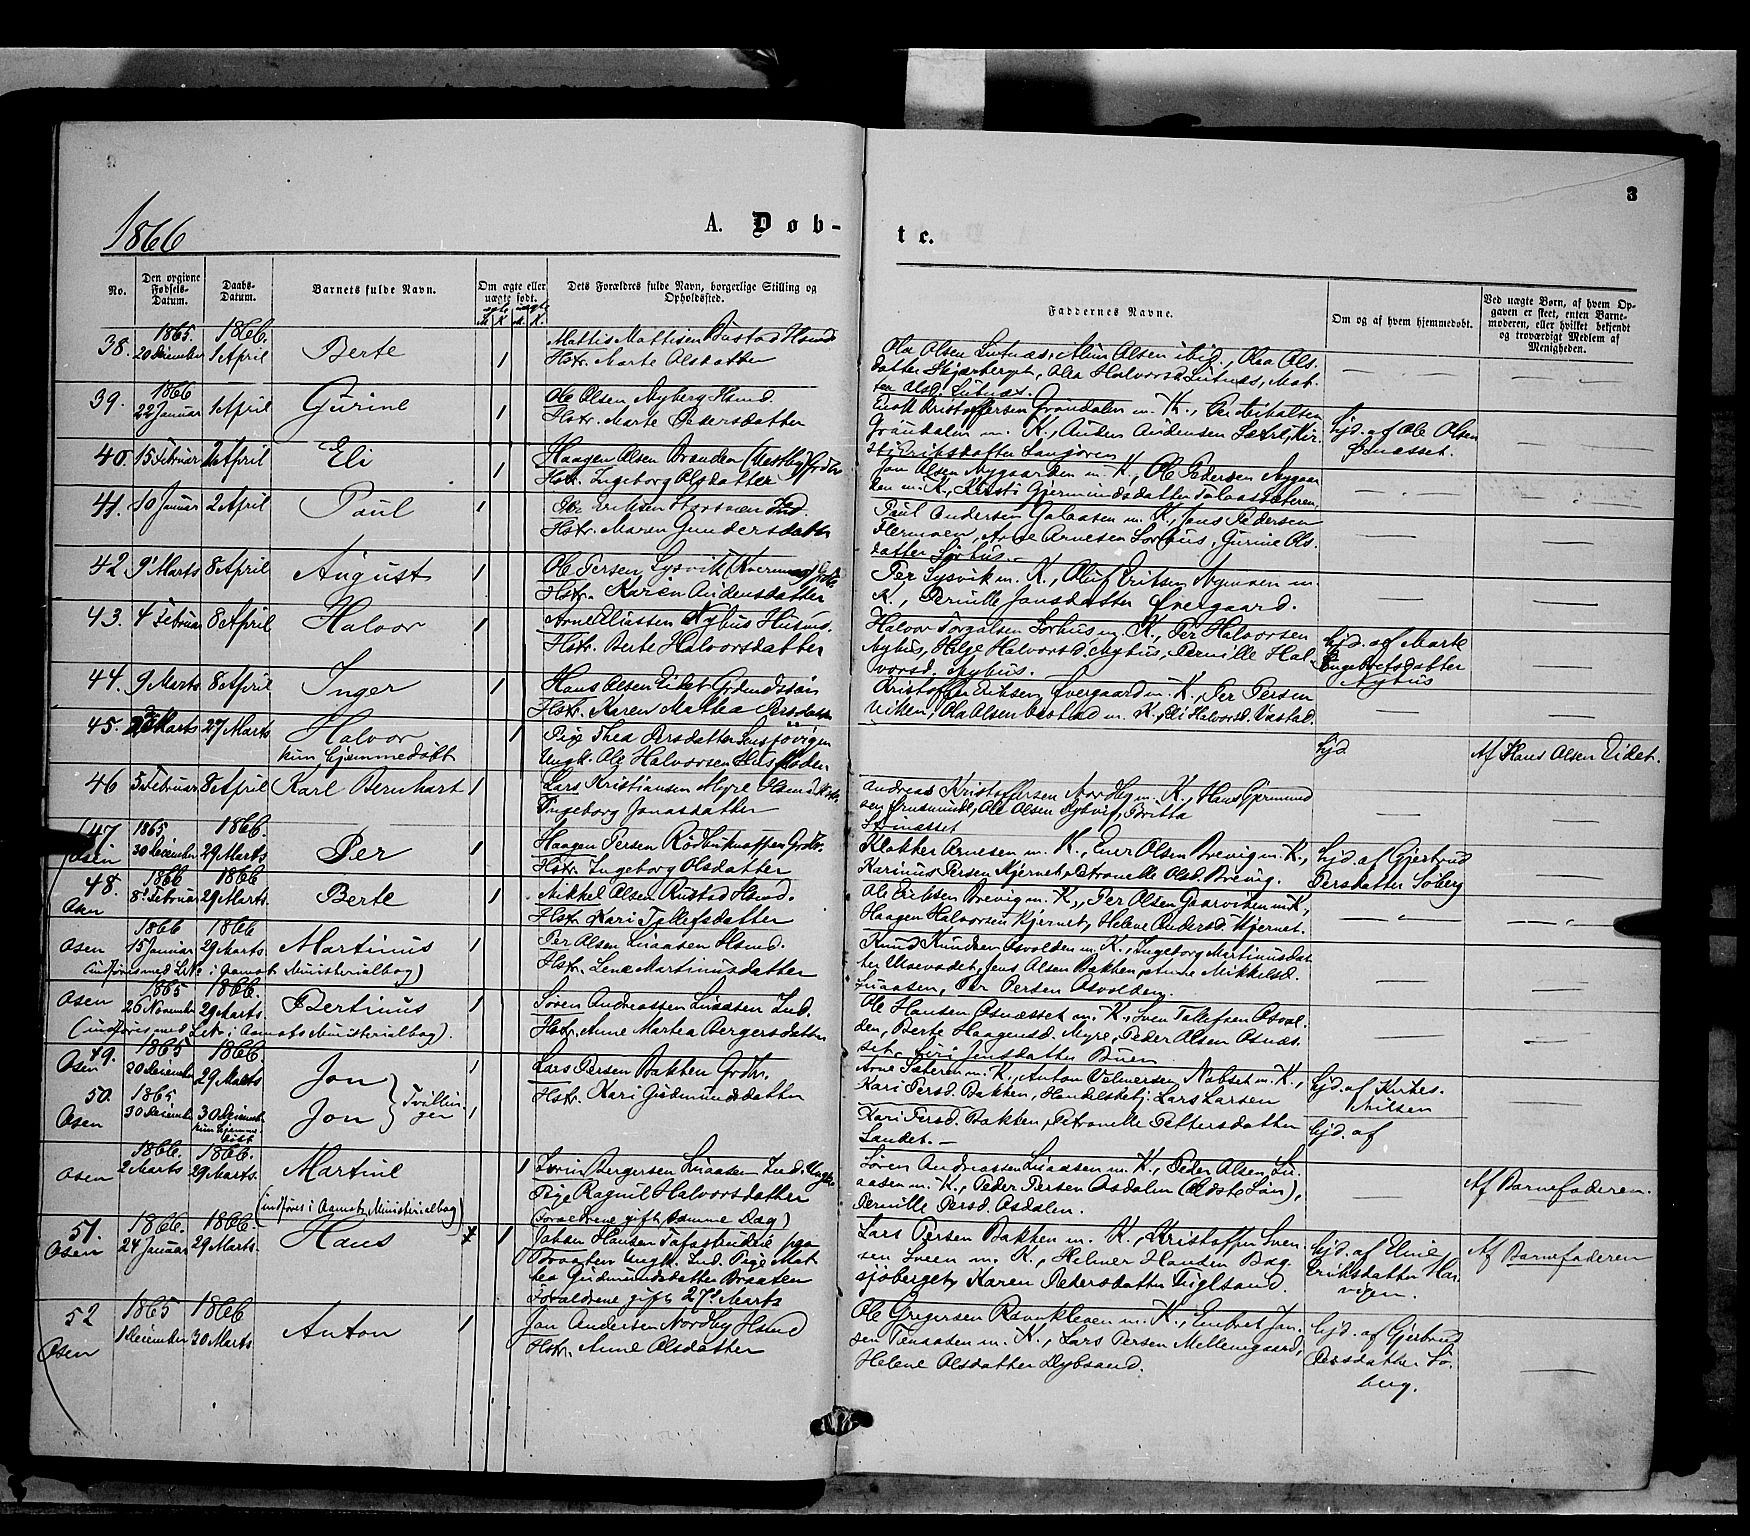 3
1866
A. Døb-
te.
No.
Den opgivne Fødsels-Datum.
Daabs-Datum.
Barnets fulde Navn.
Om ægte eller uægte født.
ægte uægte
M. K. M. K.
Dets Forældres fulde Navn, borgerlige Stilling og Opholdssted.
Faddernes Navne.
Om og af hvem hjemmedøbt.
Ved uægte Børn, af hvem Opgaven er skeet, enten Barnemoderen, eller hvilket bekjendt og troværdigt Medlem af Menigheden.
38. 1865 20 December 1866. 1 April Berte 1 Mattis Mattisen Bustad Hsmd
Hstr. Marte Olsdatter
Ola Olsen Lutnæs, Olsen ibid, Olea Ols-
datter Skjærberget, Olea Halvorsd. Lutnæs, Mat-
Lutnæs.
39. 1866 22 Januar 1 April Gurine 1 Ole Olsen Nyberg Hsmd.
Hstr. Marte Pedersdatter
Kristoffersen Grøndalen m. K.,
Grøndalen m. K., Anders Andersen
Eriksdatter
Hjd. af Ole Olsen
40. 15 Februar 2 April Eli 1 Haagen Olsen Branden (Nestby) Grdbr
Hstr. Ingeborg Olsdatter
Jon Olsen Nygaarden m. K., Ole Pedersen Nygaar
den m. K., Kirsti Gjermundsdatter
41. 10 Januar 2 April Paul 1 Ole Eriksen Ind.
Hstr. Maren Gundersdatter
Paul Andersen Galaasen m. K., Jens Pedersen
Flermoen, Arne Arnesen Sørhus, Gurine Ols-
datter Sørhus.
42. 9 Marts 8 April August 1 Ole Persen Lysvik (Kvernnes) Grdbr
Hstr. Karen Andersdatter
Per Lysvik m. K., Oluf Eriksen Nymoen m.
K., Pernille Jonsdatter Øvergaard.
43. 4 Februar 8 April Halvor 1 Arne Eliassen Nyhus Husmd.
Hstr. Berte Halvorsdatter
Halvor Torgalsen Sørhus m. K., Per Halvorsen
Nyhus, Helge Halvorsd. Nyhus, Pernille Hal-
vorsd. Nyhus.
Hjd. af Marte
Engebretsdatter
Nyhus
44. 9 Marts 8 April Inger 1 Hans Olsen Eidet Grdmdssøn
Hstr. Karen Mathea Persdatter
Kristoffer Eriksen Øvergaard m. K., Per Persen
Viken, Ola Olsen Bustad m. K., Eli Halvorsd. Bustad.
45. Marts 27 Marts Halvor
kun hjemmedøbt
1 Pige Thea Persdatter
Ungk. Ole Halvorsen
Hjd
Af Hans Olsen Eidet.
46 5 Februar 8 April Karl Bernhart 1 Lars Kristiansen Myre Hsmd Hstr.
Ingeborg Jonasdatter
Andreas Kristoffersen m. K., Hans Gjermund
sen Ole Olsen Britta
47 Osen 1865 30 December 1866. 29 Marts Per 1 Haagen Persen Rødbæknappen Grdbr.
Hstr. Ingeborg Olsdatter
Klokker Arnesen m. K., Ener Olsen Brevig m. K.,
Karinus Persen Kjernet, Petronelle Olsd. Brevig.
Hjd. af Gjertrud
Persdatter Søberg
48. Osen 1866 8 Februar 1866 29 Marts. Berte 1 Mikkel Olsen Rustad Hsmd.
Hstr. Kari Tollefsdatter
Ole Eriksen Brevig m. K., Per Olsen Gaarviken m. K.,
Haagen Halvorsen Kjernet, Helene Andersd. Kjernet.
Osen 1866 15 Januar 1866 29 Marts Martinus 1 Per Olsen Liaasen Hsmd.
(indføres med Litr. i Aamots Ministerialbog)
Hstr. Lene Martinusdatter
Knud Knudsen Osvolden m. K., Ingeborg Martinusdat-
ter Jens Olsen Bakken, Anne Mikkelsd.
Liaasen, Per Persen Osvolden.
Osen 1865 26 November 1866. 29 Marts. Bertinus 1 Søren Andreassen Liaasen Ind.
(indføres med Litr. i Aamots Ministerialbog).
Hstr. Anne Martea Bergersdatter
Ole Hansen Osnæsset m. K., Sven Tollefsen Osvol-
den, Berte Haagensd. Myre, Peder Olsen Osnæs-
set, Siri Jensdatter Buen.
49. Osen 1865 20 December 1866. 29 Marts Jon 1 Lars Persen Bakken Grdbr.
Hstr. Kari Gudmundsdatter
Tvillin-
ger
Arne Sæteren m. K., Anton Velmersen Nabset m. K.,
Kari Persd. Bakken, Handelsbetj. Lars Larsen
Hjd. af
Nilsen
50. Osen 1865 20 December 30 December kun hjemme-døbt Jon 1
Kari Persd. Bakken, Petronelle Pettersdatter
Landet.
Hjd. af
Osen 1866. 2 Marts 1866. 29 Marts. Martine
(indføres i Aamots Ministerialbog)
1 Søren Bergersen Liaasen Ind. Ungk.
Pige Ragnil Halvorsdatter
(Forældrene gift samme Dag)
Søren Andreassen Liaasen m. K., Peder Olsen Li-
aasen m. K., Peder Persen Osdalen (Ældste Søn),
Pernille Persd. Osdalen.
Af Barnefaderen.
51. Osen 1866. 24 Januar 1866. 29 Marts. Hans 1 Johan Hansen paa
Braaten Ungk. Ind. Pige Mat-
hea Gudmundsdatter Braaten
Forældrene gift 27. Marts
Lars Persen Bakken m. K., Kristoffer Sven-
sen Sveen m. K., Helmer Hansen Bag-
sjøberget, Karen Pedersdatter Fuglsand.
Hjd. af Eline
Eriksdatter Har-
vigen.
Af Barnefaderen
52 Osen 1865 1 December 1866 30 Marts. Anton 1 Jon Andersen Nordby Hsmd
Hstr. Anne Olsdatter
Ole Gregersen Ravnkleven m. K., Embret Jon-
sen Tenaasen m. K., Lars Persen Mellemgaard,
Helene Olsdatter Dybsand.
Hjd. af Gjertrud
Persdatter Sø-
berg.